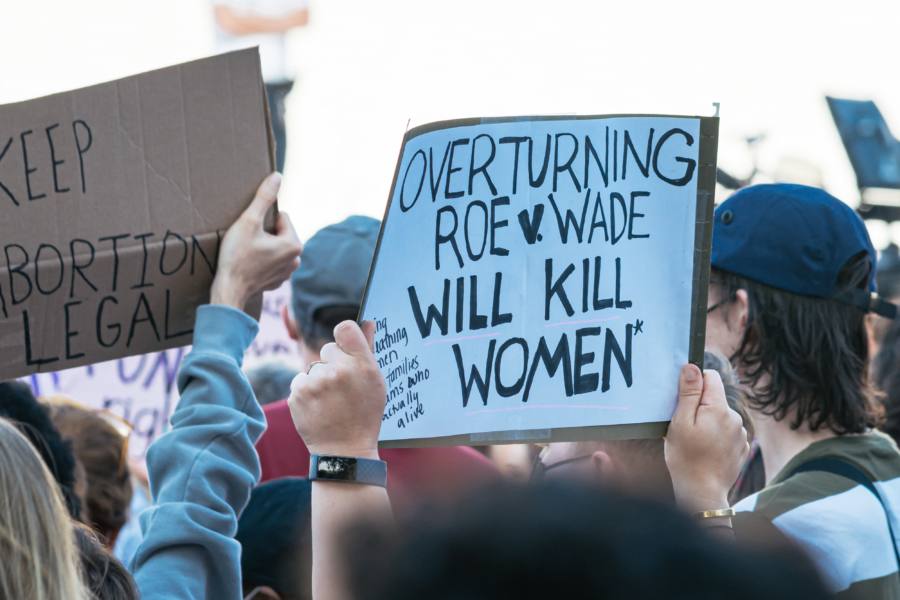 KEEP
ABORTION
LEGAL
OVERTURNING
ROE V. WADE
WILL KILL
WOMEN*
families
who
actually
alive